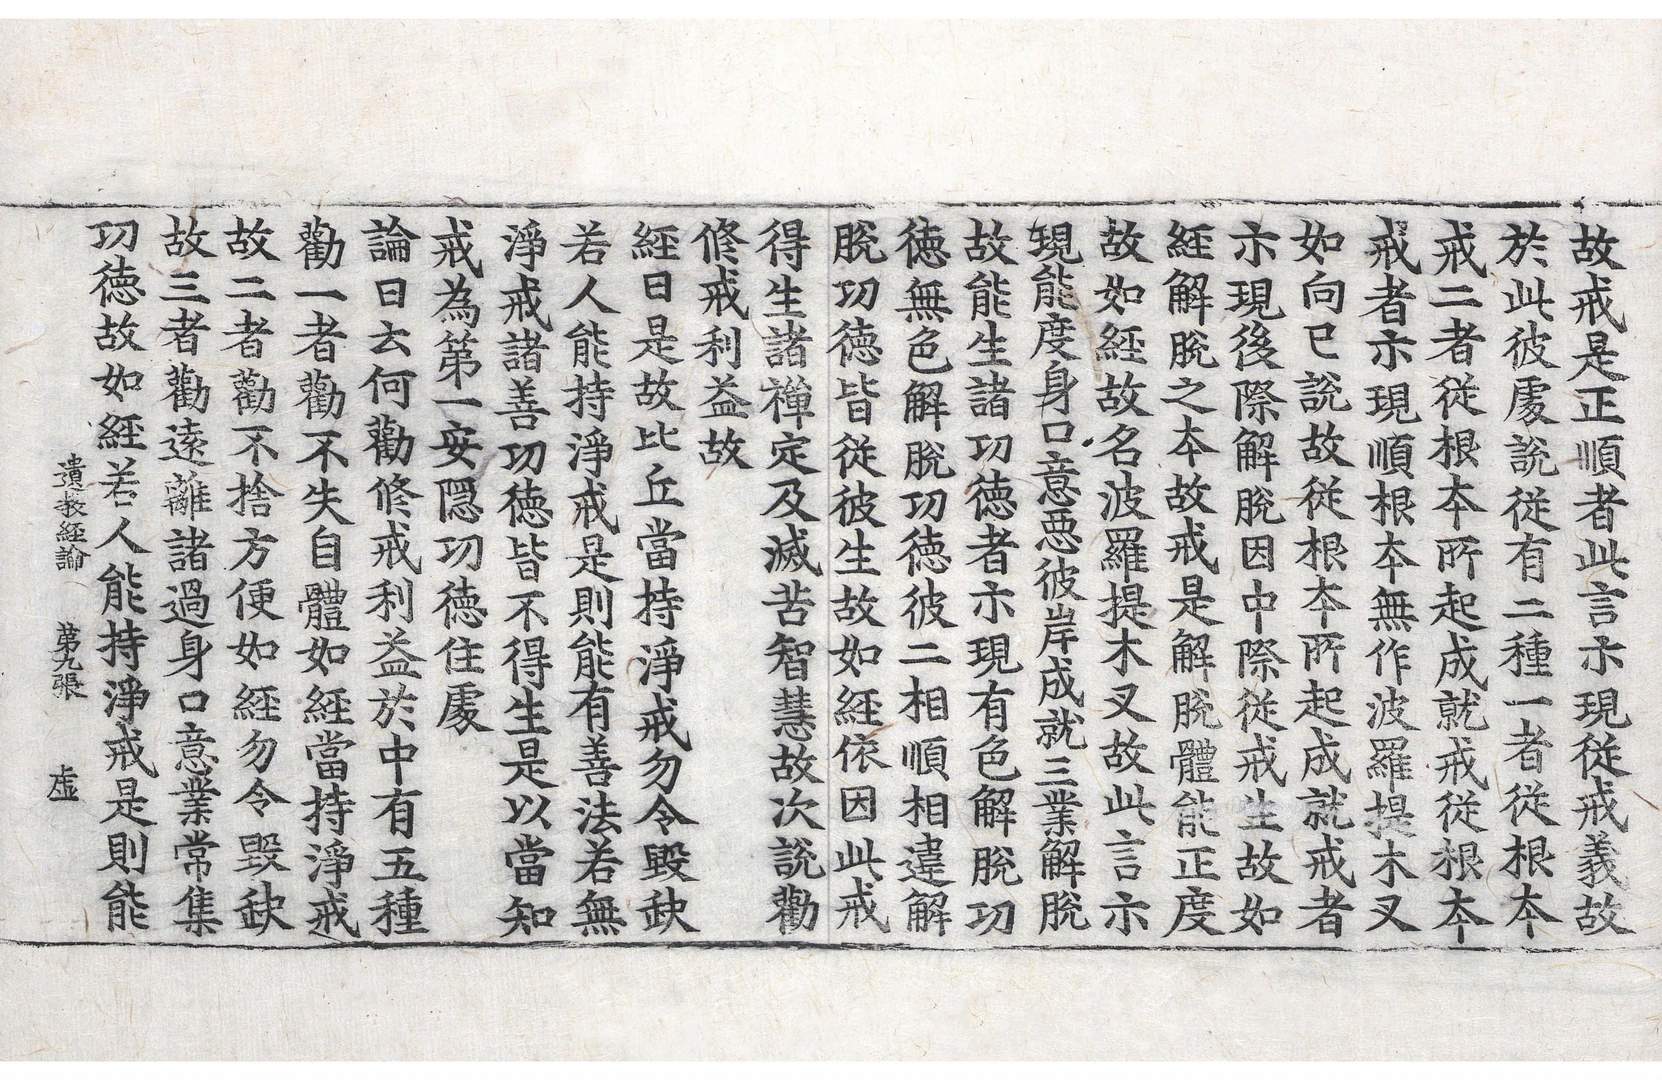 故戒是正順者此言示現從戒義故
於此彼處說從有二種一者從根本
戒二者從根本所起成就戒從根本
戒者示現順根本無作波羅提木叉
如向已說故從根本所起成就戒者
示現後際解脫因中際從戒生故如
經解脫之本故戒是解脫體能正度
故如經故名波羅提木叉故此言示
現能度身口意惡彼岸成就三業解脫
故能生諸功德者示現有色解脫功
德無色解脫功德彼二相順相違解
脫功德皆從彼生故如經依因此戒
得生諸禪定及滅苦智慧故次說勸
修戒利益故
經曰是故比丘當持淨戒勿令毀缺
若人能持淨戒是則能有善法若無
淨戒諸善功德皆不得生是以當知
戒為第一安隱功德住處
論曰云何勸修戒利益於中有五種
勸一者勸不失自體如經當持淨戒
故二者勸不捨方便如經勿令毀缺
故三者勸遠離諸過身口意業常集
功德故如經若人能持淨戒是則能
遺教經論 第九張 虛